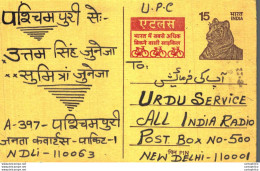 U.P.C
पश्चिम पुरी से:-
उत्तम सिंह जुनेजा
सुमित्रा जुनेजा
A-397- पश्चिम पुरी
जनता क्वार्टस- पाकिट-1
N. DLI- 110063
एटलस
भारत में सबसे अधिक
बिकने वाली साइकिल
15
भारत INDIA
TO,
URDU SERVICE
ALL INDIA RADIO
POST BOX NO-500
पिन PIN
NEW DELHI-110001